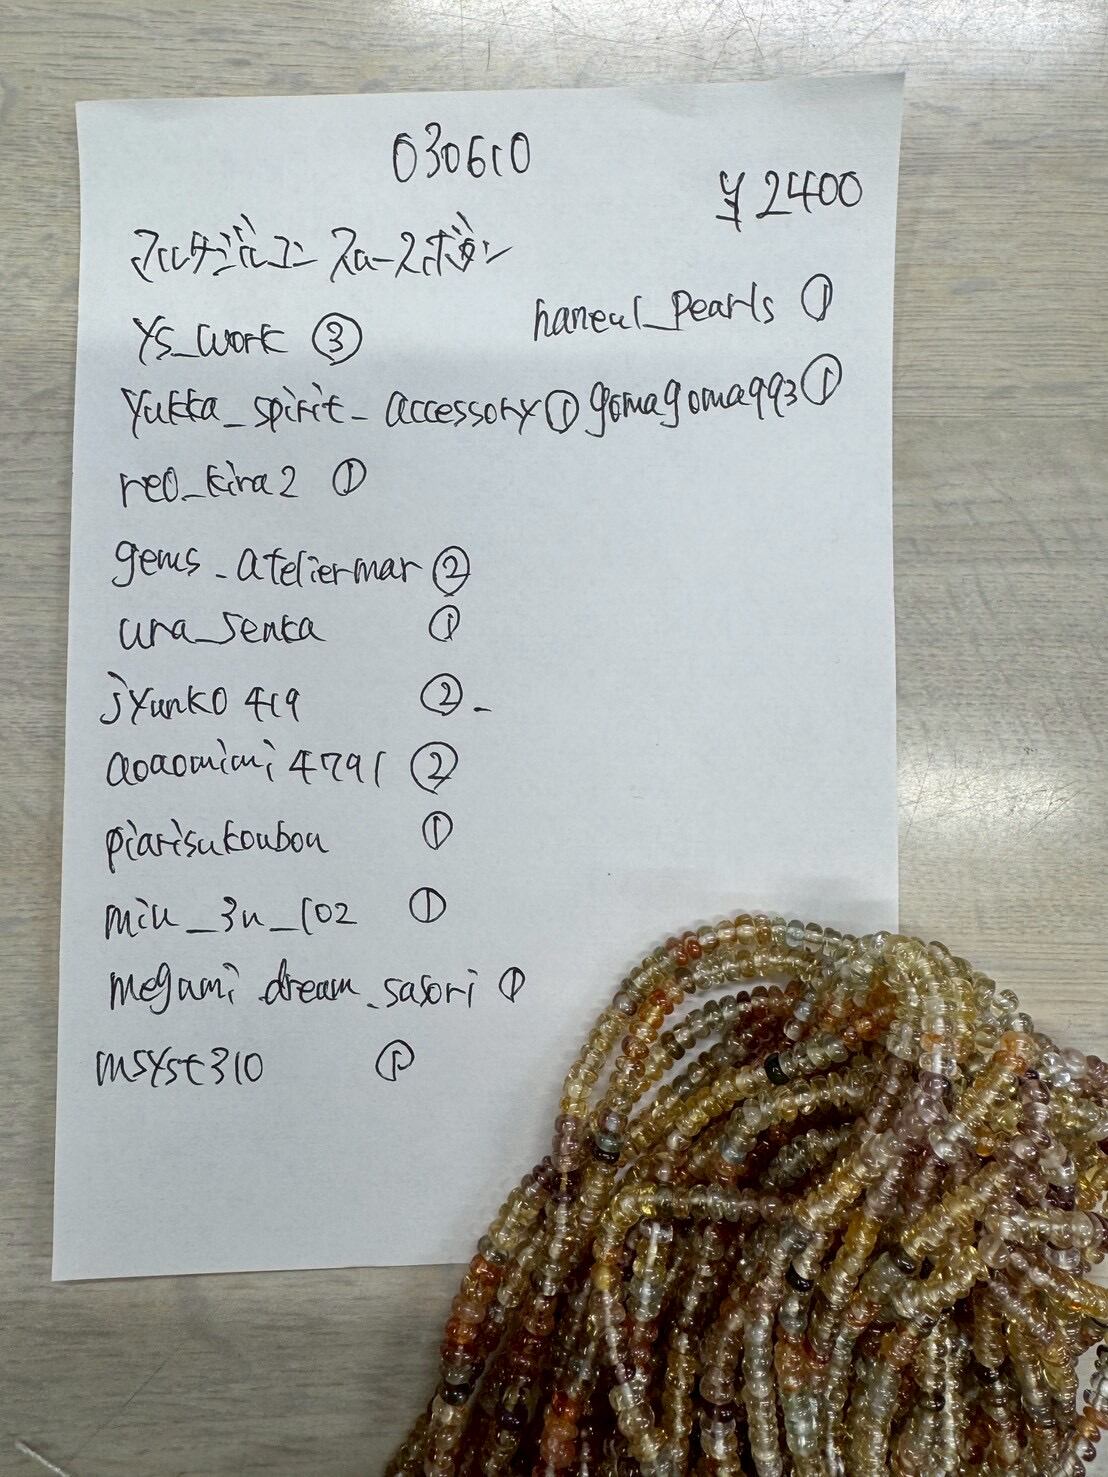 030610
¥2400
マルチジルコン スムースボタン
ys_work ③
haneul_pearls ①
yukka_spirit_accessory ① gomagoma993 ①
reo_kira2 ①
gems_ateliermar ②
una_senka ①
jyunko419 ②
aoaomimi4791 ②
piarisukoubou ①
miu_3u_102 ①
megami_dream_sasori ①
msyst310 ①